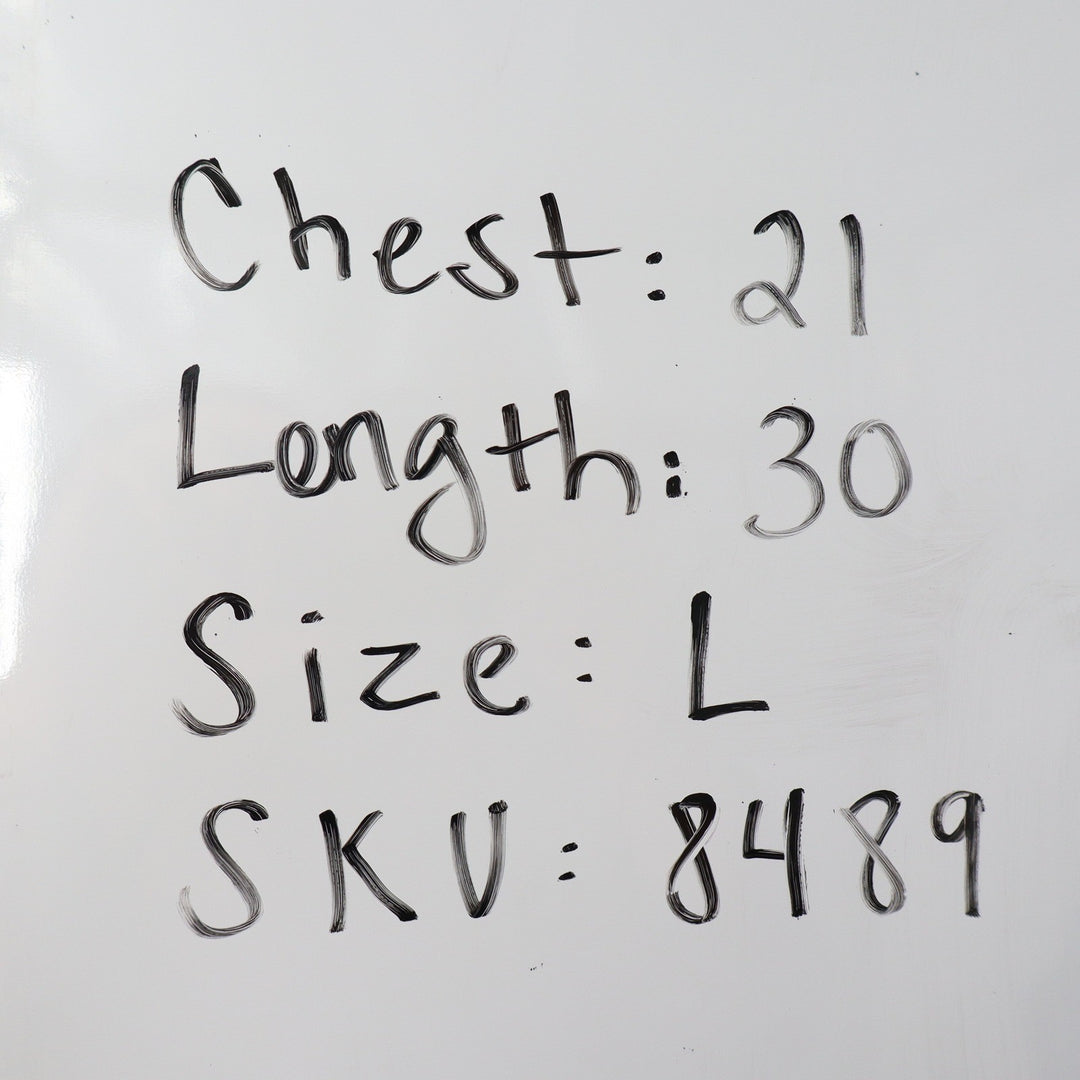 Chest: 21
Length: 30
Size: L
SKU: 8489